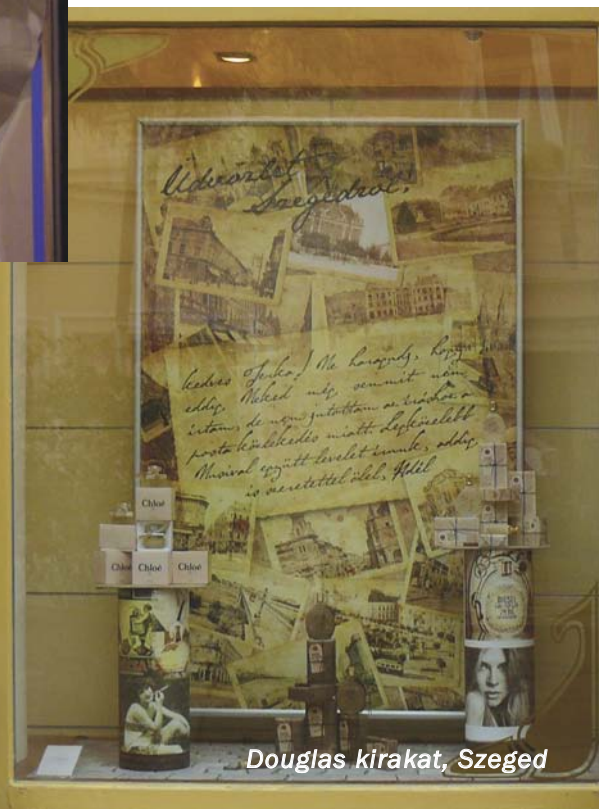 Üdvözlet
Szegedről!
kedves Jenka! Ne haragudj, hogy
eddig Neked még semmit nem
írtam, de nem jutottam az íráshoz a
posta közlekedés miatt. Legközelebb
Musival együtt levelet írunk, addig
is szeretettel ölel, Adél
Chloé
Chloé
Chloé
Chloé
Douglas kirakat, Szeged